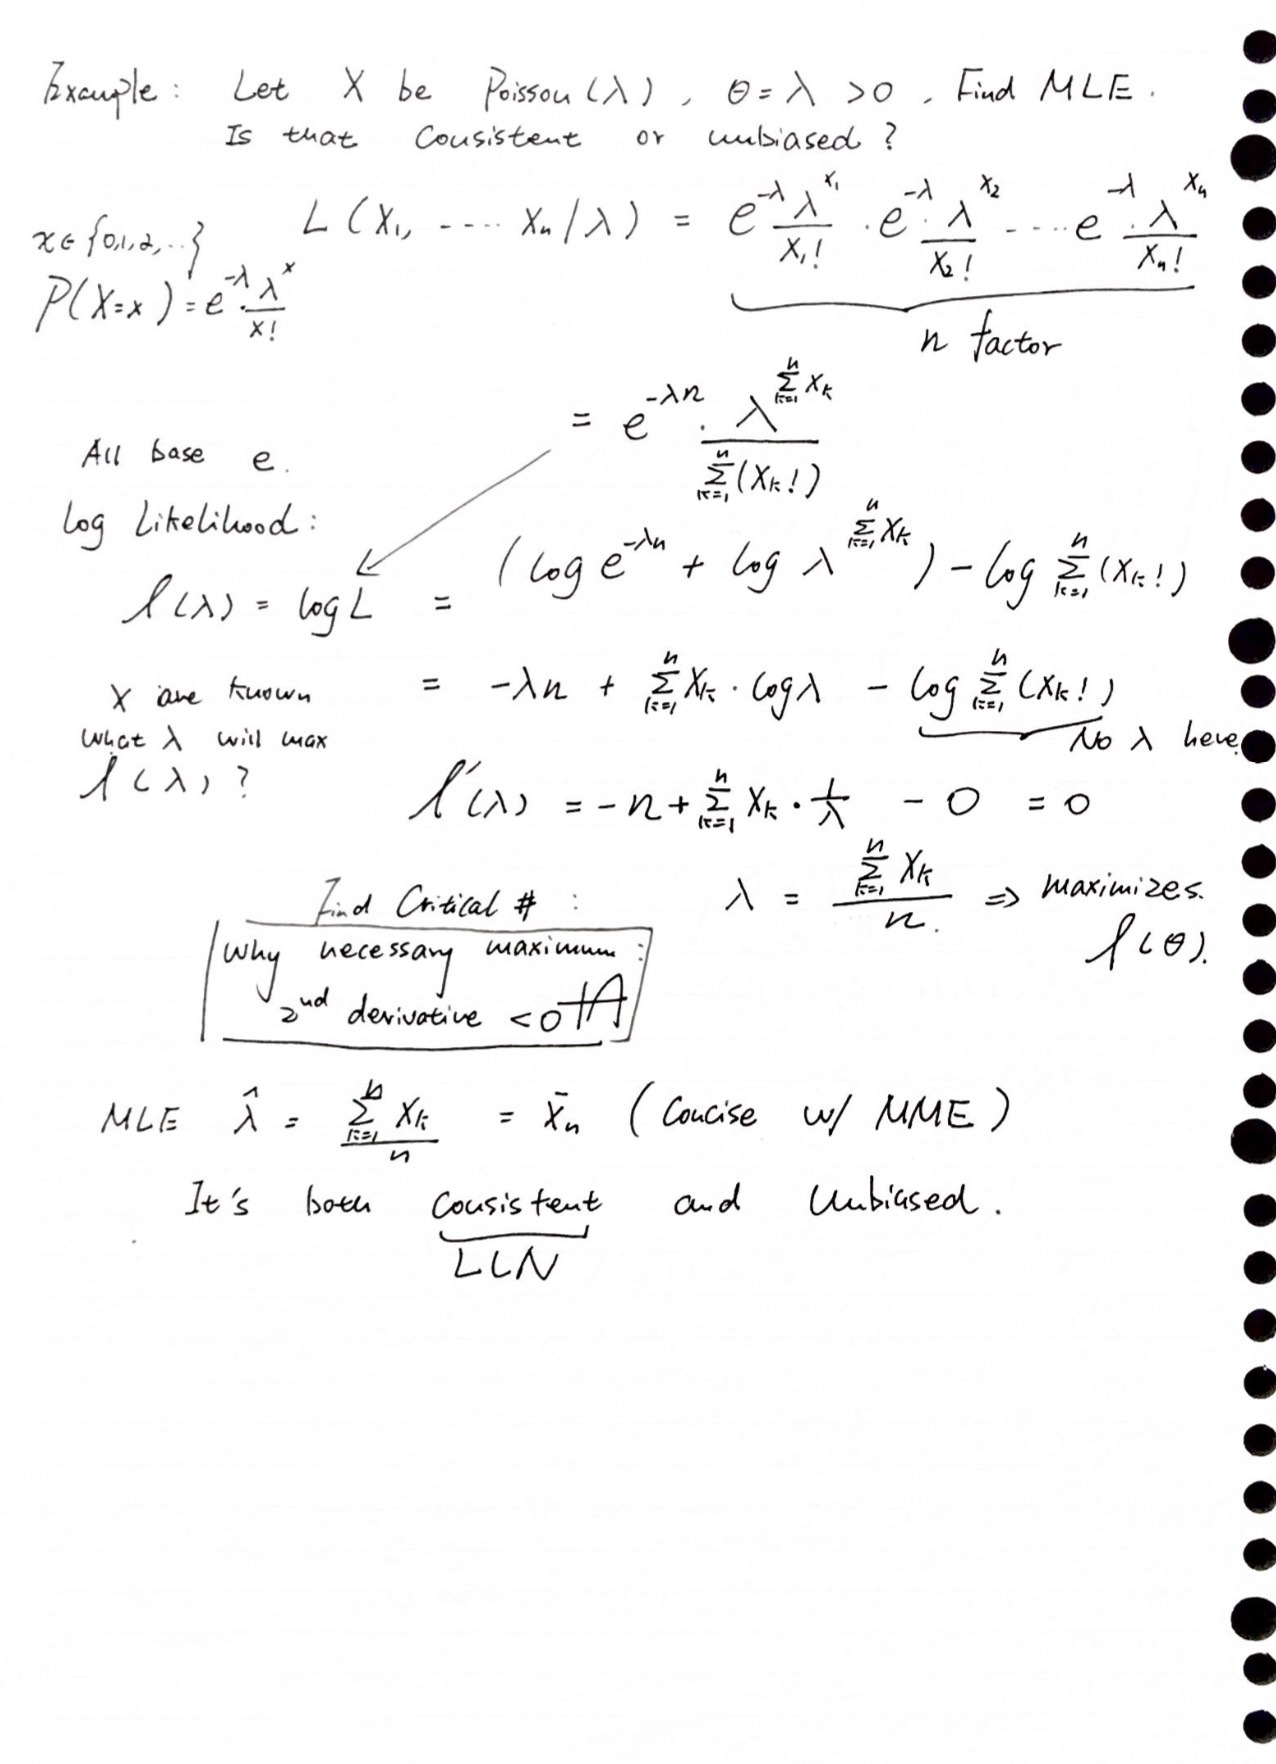 Example: Let X be Poisson(λ), θ = λ > 0, Find MLE.
Is that Consistent or unbiased?
x ∈ {0,1,2,...}
P(X=x) = e^{-λ} · λ^x / x!
L(X₁, ---- Xₙ/λ) = e^{-λ} λ^{x₁} / X₁! · e^{-λ} · λ^{x₂} / X₂! ---- e^{-λ} · λ^{xₙ} / Xₙ!
n factor
= e^{-λn} · λ^{∑_{k=1}^{n} X_k} / ∑_{k=1}^{n} (X_k!)
All base e.
log Likelihood:
l(λ) = log L = (log e^{-λn} + log λ^{∑_{k=1}^{n} X_k}) - log ∑_{k=1}^{n} (X_k!)
= -λn + ∑_{k=1}^{n} X_k · log λ - log ∑_{k=1}^{n} (X_k!)
No λ here
X are known
what λ will max
l(λ)?
l'(λ) = -n + ∑_{k=1}^{n} X_k · 1/λ - 0 = 0
λ = ∑_{k=1}^{n} X_k / n. ⇒ maximizes.
l(θ).
Find Critical # :
Why necessary maximum :
2nd derivative < 0
MLE λ̂ = ∑_{k=1}^{n} X_k / n = X̄ₙ (Concise w/ MME)
It's both Consistent and Unbiased.
LLN